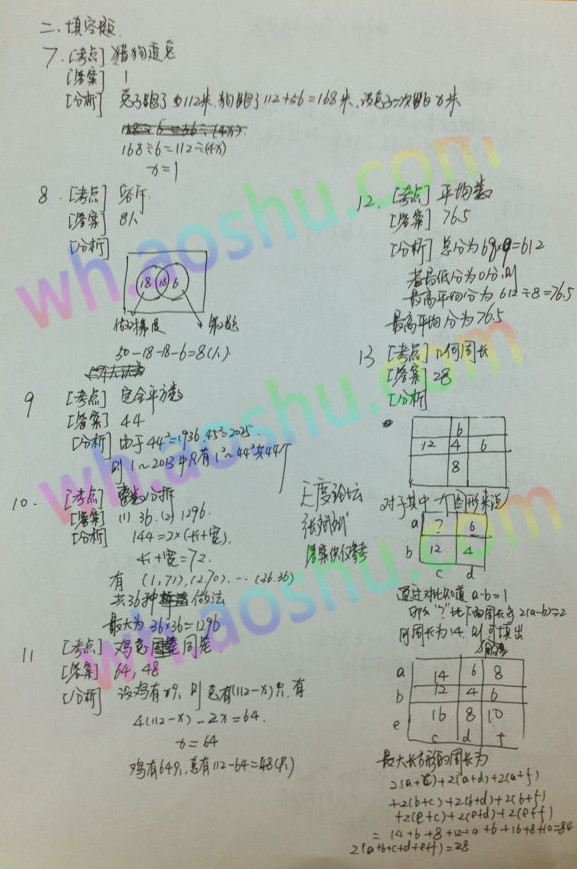 二、填空题.
7. [考点] 猎狗追兔
[答案] 1
[分析] 兔子跑了 112米. 狗跑了 112+56=168米. 设兔子一次跑 x米
168÷6=112÷(4x)
x=1
8. [考点] 容斥
[答案] 8人
[分析]
18 18 6
50-18-18-6=8(人)
9 [考点] 完全平方数
[答案] 44
[分析] 由于44²=1936. 45²=2025.
则 1~2013中只有1²~44²共44个
10. [考点]
[答案] (1) 36. (2) 1296.
[分析] 144=2×(长+宽).
长+宽=72.
有 (1,71),(2,70)...(36.36)
共36种 做法
最大为 36×36=1296
11 [考点] 鸡兔同笼
[答案] 64, 48
[分析] 设鸡有x只, 则兔有(112-x)只. 有
4(112-x)-2x=64.
x=64
鸡有64只, 兔有112-64=48(只)
无度论坛
答案仅供参考
12. [考点] 平均数
[答案] 76.5
[分析] 总分为68×9=612
若最低分为0分. 则
最高平均分为 612÷8=76.5
最高平均分为76.5
13 [考点] 几何周长
[答案] 28
[分析]
6
12 4 6
8
对于其中一个图形来说
a ? 6
b 12 4
c d
通过对比知道 a-b=1
那么"?"比下面周长多2(a-b)=2
则周长为14. 则可填出
a 14 6 8
b 12 4 6
e 16 8 10
c d f
最大长方形的周长为
2(a+c)+2(a+d)+2(a+f)
+2(b+c)+2(b+d)+2(b+f)
+2(e+c)+2(e+d)+2(e+f)
=14+6+8+12+4+6+16+8+10=84
2(a+b+c+d+e+f)=28
wh.aoshu.com
wh.aoshu.com
wh.aoshu.com